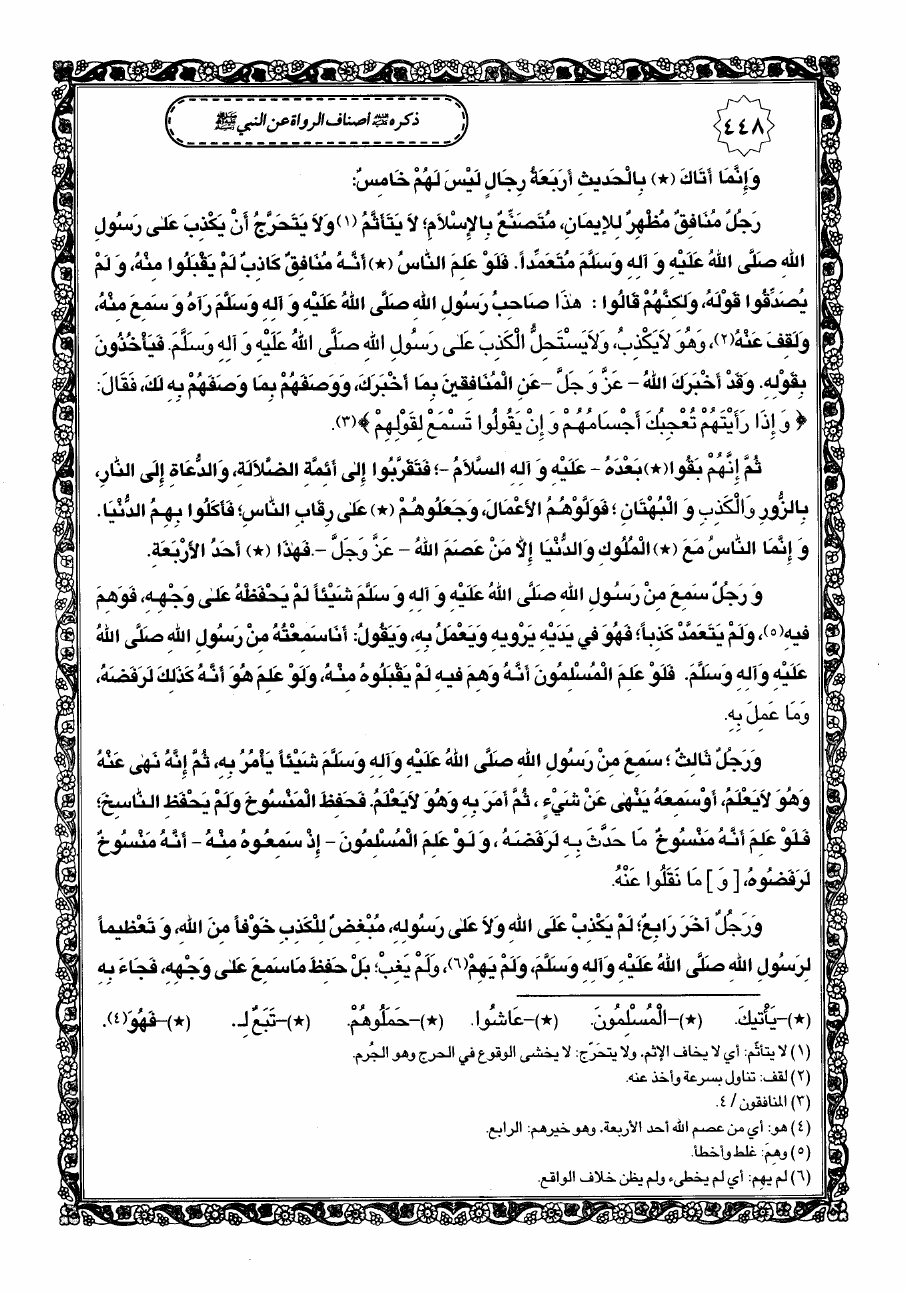 ٤٤٨
ذكره ﷺ اصناف الرواة عن النبي ﷺ
وَإِنَّمَا أَتَاكَ (★) بِالْحَدِيثِ أَرْبَعَةُ رِجَالٍ لَيْسَ لَهُمْ خَامِسٌ:
رَجُلٌ مُنَافِقٌ مُظْهِرٌ لِلإِيمَانِ، مُتَصَنِّعٌ بِالإِسْلاَمِ؛ لاَ يَتَأَثَّمُ (١) وَلاَ يَتَحَرَّجُ أَنْ يَكْذِبَ عَلىٰ رَسُولِ
اللهِ صَلَّى اللهُ عَلَيْهِ وَ آلِهِ وَسَلَّمَ مُتَعَمِّداً. فَلَوْ عَلِمَ النَّاسُ (★) أَنَّهُ مُنَافِقٌ كَاذِبٌ لَمْ يَقْبَلُوا مِنْهُ، وَ لَمْ
يُصَدِّقُوا قَوْلَهُ، وَلكِنَّهُمْ قَالُوا : هذَا صَاحِبُ رَسُولِ اللهِ صَلَّى اللهُ عَلَيْهِ وَ آلِهِ وَسَلَّمَ رَآهُ وَ سَمِعَ مِنْهُ،
وَلَقِفَ عَنْهُ (٢)، وَهُوَ لاَيَكْذِبُ، وَلاَيَسْتَحِلُّ الْكَذِبَ عَلىٰ رَسُولِ اللهِ صَلَّى اللهُ عَلَيْهِ وَ آلِهِ وَسَلَّمَ. فَيَأْخُذُونَ
بِقَوْلِهِ. وَقَدْ أَخْبَرَكَ اللهُ – عَزَّ وَ جَلَّ – عَنِ الْمُنَافِقِينَ بِمَا أَخْبَرَكَ، وَوَصَفَهُمْ بِمَا وَصَفَهُمْ بِهِ لَكَ، فَقَالَ:
﴿ وَ إِذَا رَأَيْتَهُمْ تُعْجِبُكَ أَجْسَامُهُمْ وَ إِنْ يَقُولُوا تَسْمَعْ لِقَوْلِهِمْ ﴾(٣).
ثُمَّ إِنَّهُمْ بَقُوا (★) بَعْدَهُ – عَلَيْهِ وَ آلِهِ السَّلاَمُ –؛ فَتَقَرَّبُوا إِلىٰ أَئِمَّةِ الضَّلاَلَةِ، وَالدُّعَاةِ إِلَى النَّارِ،
بِالزُّورِ وَالْكَذِبِ وَ الْبُهْتَانِ ؛ فَوَلَّوْهُمُ الأَعْمَالَ، وَجَعَلُوهُمْ (★) عَلىٰ رِقَابِ النَّاسِ؛ فَأَكَلُوا بِهِمُ الدُّنْيَا.
وَ إِنَّمَا النَّاسُ مَعَ (★) الْمُلُوكِ وَالدُّنْيَا إِلاَّ مَنْ عَصَمَ اللهُ – عَزَّ وَجَلَّ –. فَهٰذَا (★) أَحَدُ الأَرْبَعَةِ.
وَ رَجُلٌ سَمِعَ مِنْ رَسُولِ اللهِ صَلَّى اللهُ عَلَيْهِ وَ آلِهِ وَ سَلَّمَ شَيْئاً لَمْ يَحْفَظْهُ عَلىٰ وَجْهِهِ، فَوَهِمَ
فِيهِ (٥)، وَلَمْ يَتَعَمَّدْ كَذِباً؛ فَهُوَ فِي يَدَيْهِ يَرْوِيهِ وَيَعْمَلُ بِهِ، وَيَقُولُ: أَنَا سَمِعْتُهُ مِنْ رَسُولِ اللهِ صَلَّى اللهُ
عَلَيْهِ وَآلِهِ وَسَلَّمَ. فَلَوْ عَلِمَ الْمُسْلِمُونَ أَنَّهُ وَهِمَ فِيهِ لَمْ يَقْبَلُوهُ مِنْهُ، وَلَوْ عَلِمَ هُوَ أَنَّهُ كَذلِكَ لَرَفَضَهُ،
وَمَا عَمِلَ بِهِ.
وَرَجُلٌ ثَالِثٌ ؛ سَمِعَ مِنْ رَسُولِ اللهِ صَلَّى اللهُ عَلَيْهِ وَآلِهِ وَسَلَّمَ شَيْئاً يَأْمُرُ بِهِ، ثُمَّ إِنَّهُ نَهىٰ عَنْهُ
وَهُوَ لاَيَعْلَمُ، أَوْ سَمِعَهُ يَنْهىٰ عَنْ شَيْءٍ ، ثُمَّ أَمَرَ بِهِ وَهُوَ لاَيَعْلَمُ. فَحَفِظَ الْمَنْسُوخَ وَلَمْ يَحْفَظِ النَّاسِخَ؛
فَلَوْ عَلِمَ أَنَّهُ مَنْسُوخٌ مَا حَدَّثَ بِهِ لَرَفَضَهُ ، وَ لَوْ عَلِمَ الْمُسْلِمُونَ – إِذْ سَمِعُوهُ مِنْهُ – أَنَّهُ مَنْسُوخٌ
لَرَفَضُوهُ، [ وَ ] مَا نَقَلُوا عَنْهُ.
وَرَجُلٌ آخَرَ رَابِعٌ؛ لَمْ يَكْذِبْ عَلَى اللهِ وَلاَ عَلىٰ رَسُولِهِ، مُبْغِضٌ لِلْكَذِبِ خَوْفاً مِنَ اللهِ، وَ تَعْظِيماً
لِرَسُولِ اللهِ صَلَّى اللهُ عَلَيْهِ وَآلِهِ وَسَلَّمَ، وَلَمْ يَهِمْ (٦)، وَلَمْ يَغِبْ؛ بَلْ حَفِظَ مَا سَمِعَ عَلىٰ وَجْهِهِ، فَجَاءَ بِهِ
(★)–يَأْتِيكَ. (★)–الْمُسْلِمُونَ. (★)–عَاشُوا. (★)–حَمَلُوهُمْ. (★)–تَبَعٌ لِـ. (★)–فَهُوَ (٤).
(١) لا يتأثّم: أي لا يخاف الإثم. ولا يتحرّج: لا يخشى الوقوع في الحرج وهو الجُرم.
(٢) لقف: تناول بسرعة وأخذ عنه.
(٣) المنافقون / ٤.
(٤) هو: أي من عصم الله أحد الأربعة. وهو خيرهم: الرابع.
(٥) وهِمَ: غلط وأخطأ.
(٦) لم يهِم: أي لم يخطىء ولم يظن خلاف الواقع.